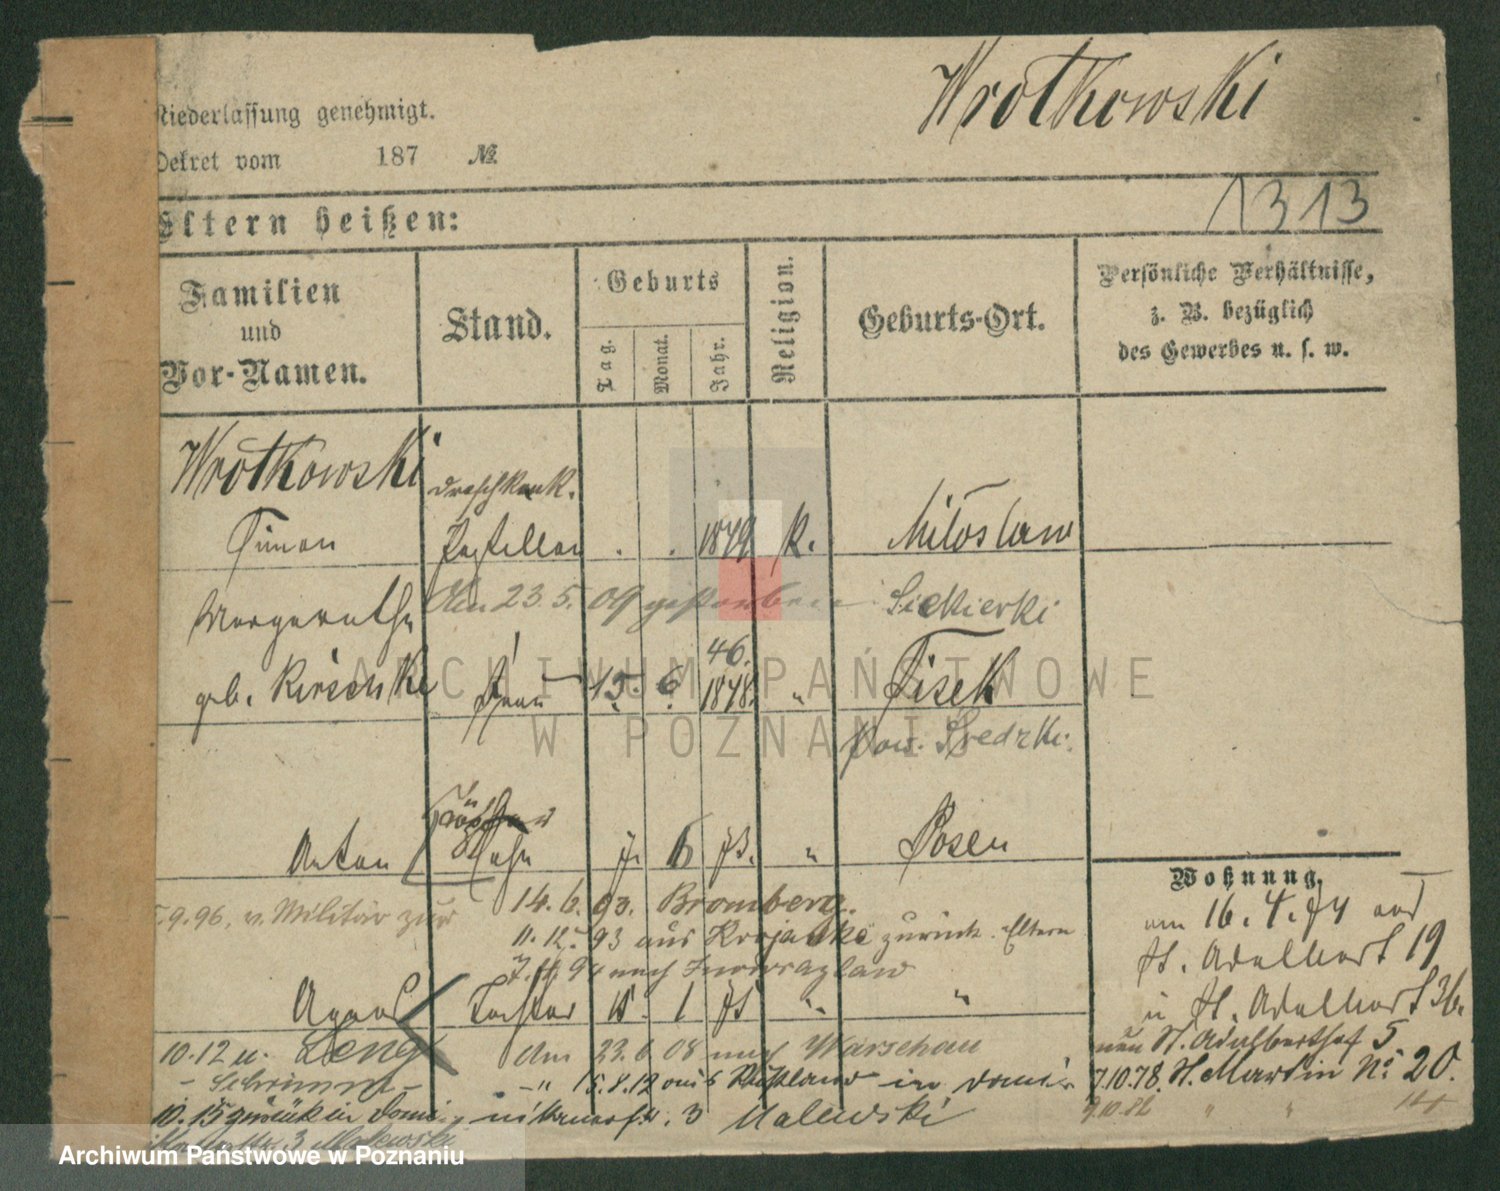 Wrotkowski
Niederlassung genehmigt.
Dekret vom 187 №
1313
Eltern heißen:
Familien und Vor-Namen.
Stand.
Geburts
Tag. Monat. Jahr.
Religion.
Geburts-Ort.
Persönliche Verhältnisse,
z. B. bezüglich
des Gewerbes u. s. w.
Wrotkowski
Simon 1849 K. Miloslaw
Am 23.5.09 gestorben Siekierki
Margarethe
geb. Kirschke Frau 15. 6. 46. 1848. " Sisek
Pow. Średzki.
Anton Sohn 7. 6 73. " Posen
Wohnung.
9.96. v. Militär zur
14.6.93. Bromberg.
11.12.93 aus Krojanke zurück. Eltern
94 nach Inowrazlaw
am 16.4.74
St. Adalbert 19
St. Adalbert 36.
Tochter 15. 1 75 " "
10.12 u. Am 23.6.08 nach Warschau
neu St. Adalberthof 5
Schrimm - " 15.8.12 aus Rußland in
7.10.78. St. Martin № 20.
10.15 zurück in 3 Malewski
9.10.82 " " 14
3 Malewski
ARCHIWUM PAŃSTWOWE
W POZNANIU
Archiwum Państwowe w Poznaniu